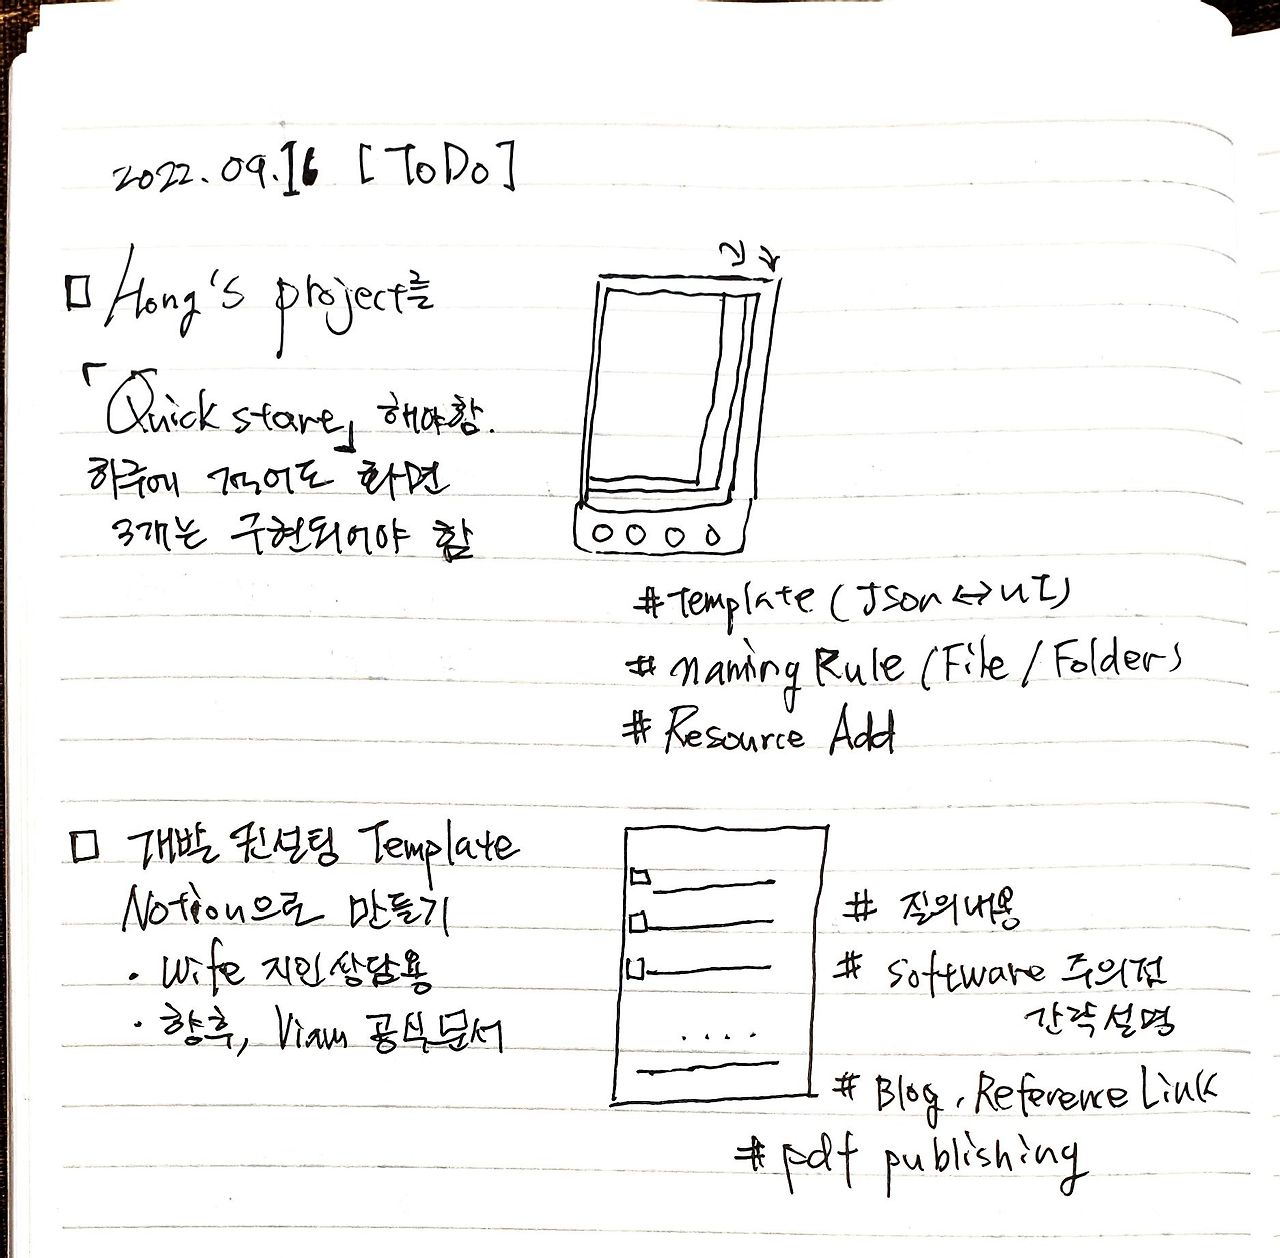 2022.09.16 [ToDo]
□ Hong's project를
「Quick start」 해야함.
하루에 적어도 화면
3개는 구현되어야 함
#Template (Json ↔ UI)
# naming Rule (File / Folder)
# Resource Add
□ 개발 컨설팅 Template
Notion으로 만들기
· Wife 지인상담용
· 향후, Viam 공식문서
# 질의내용
# Software 주의점
간략설명
# Blog, Reference Link
# pdf publishing